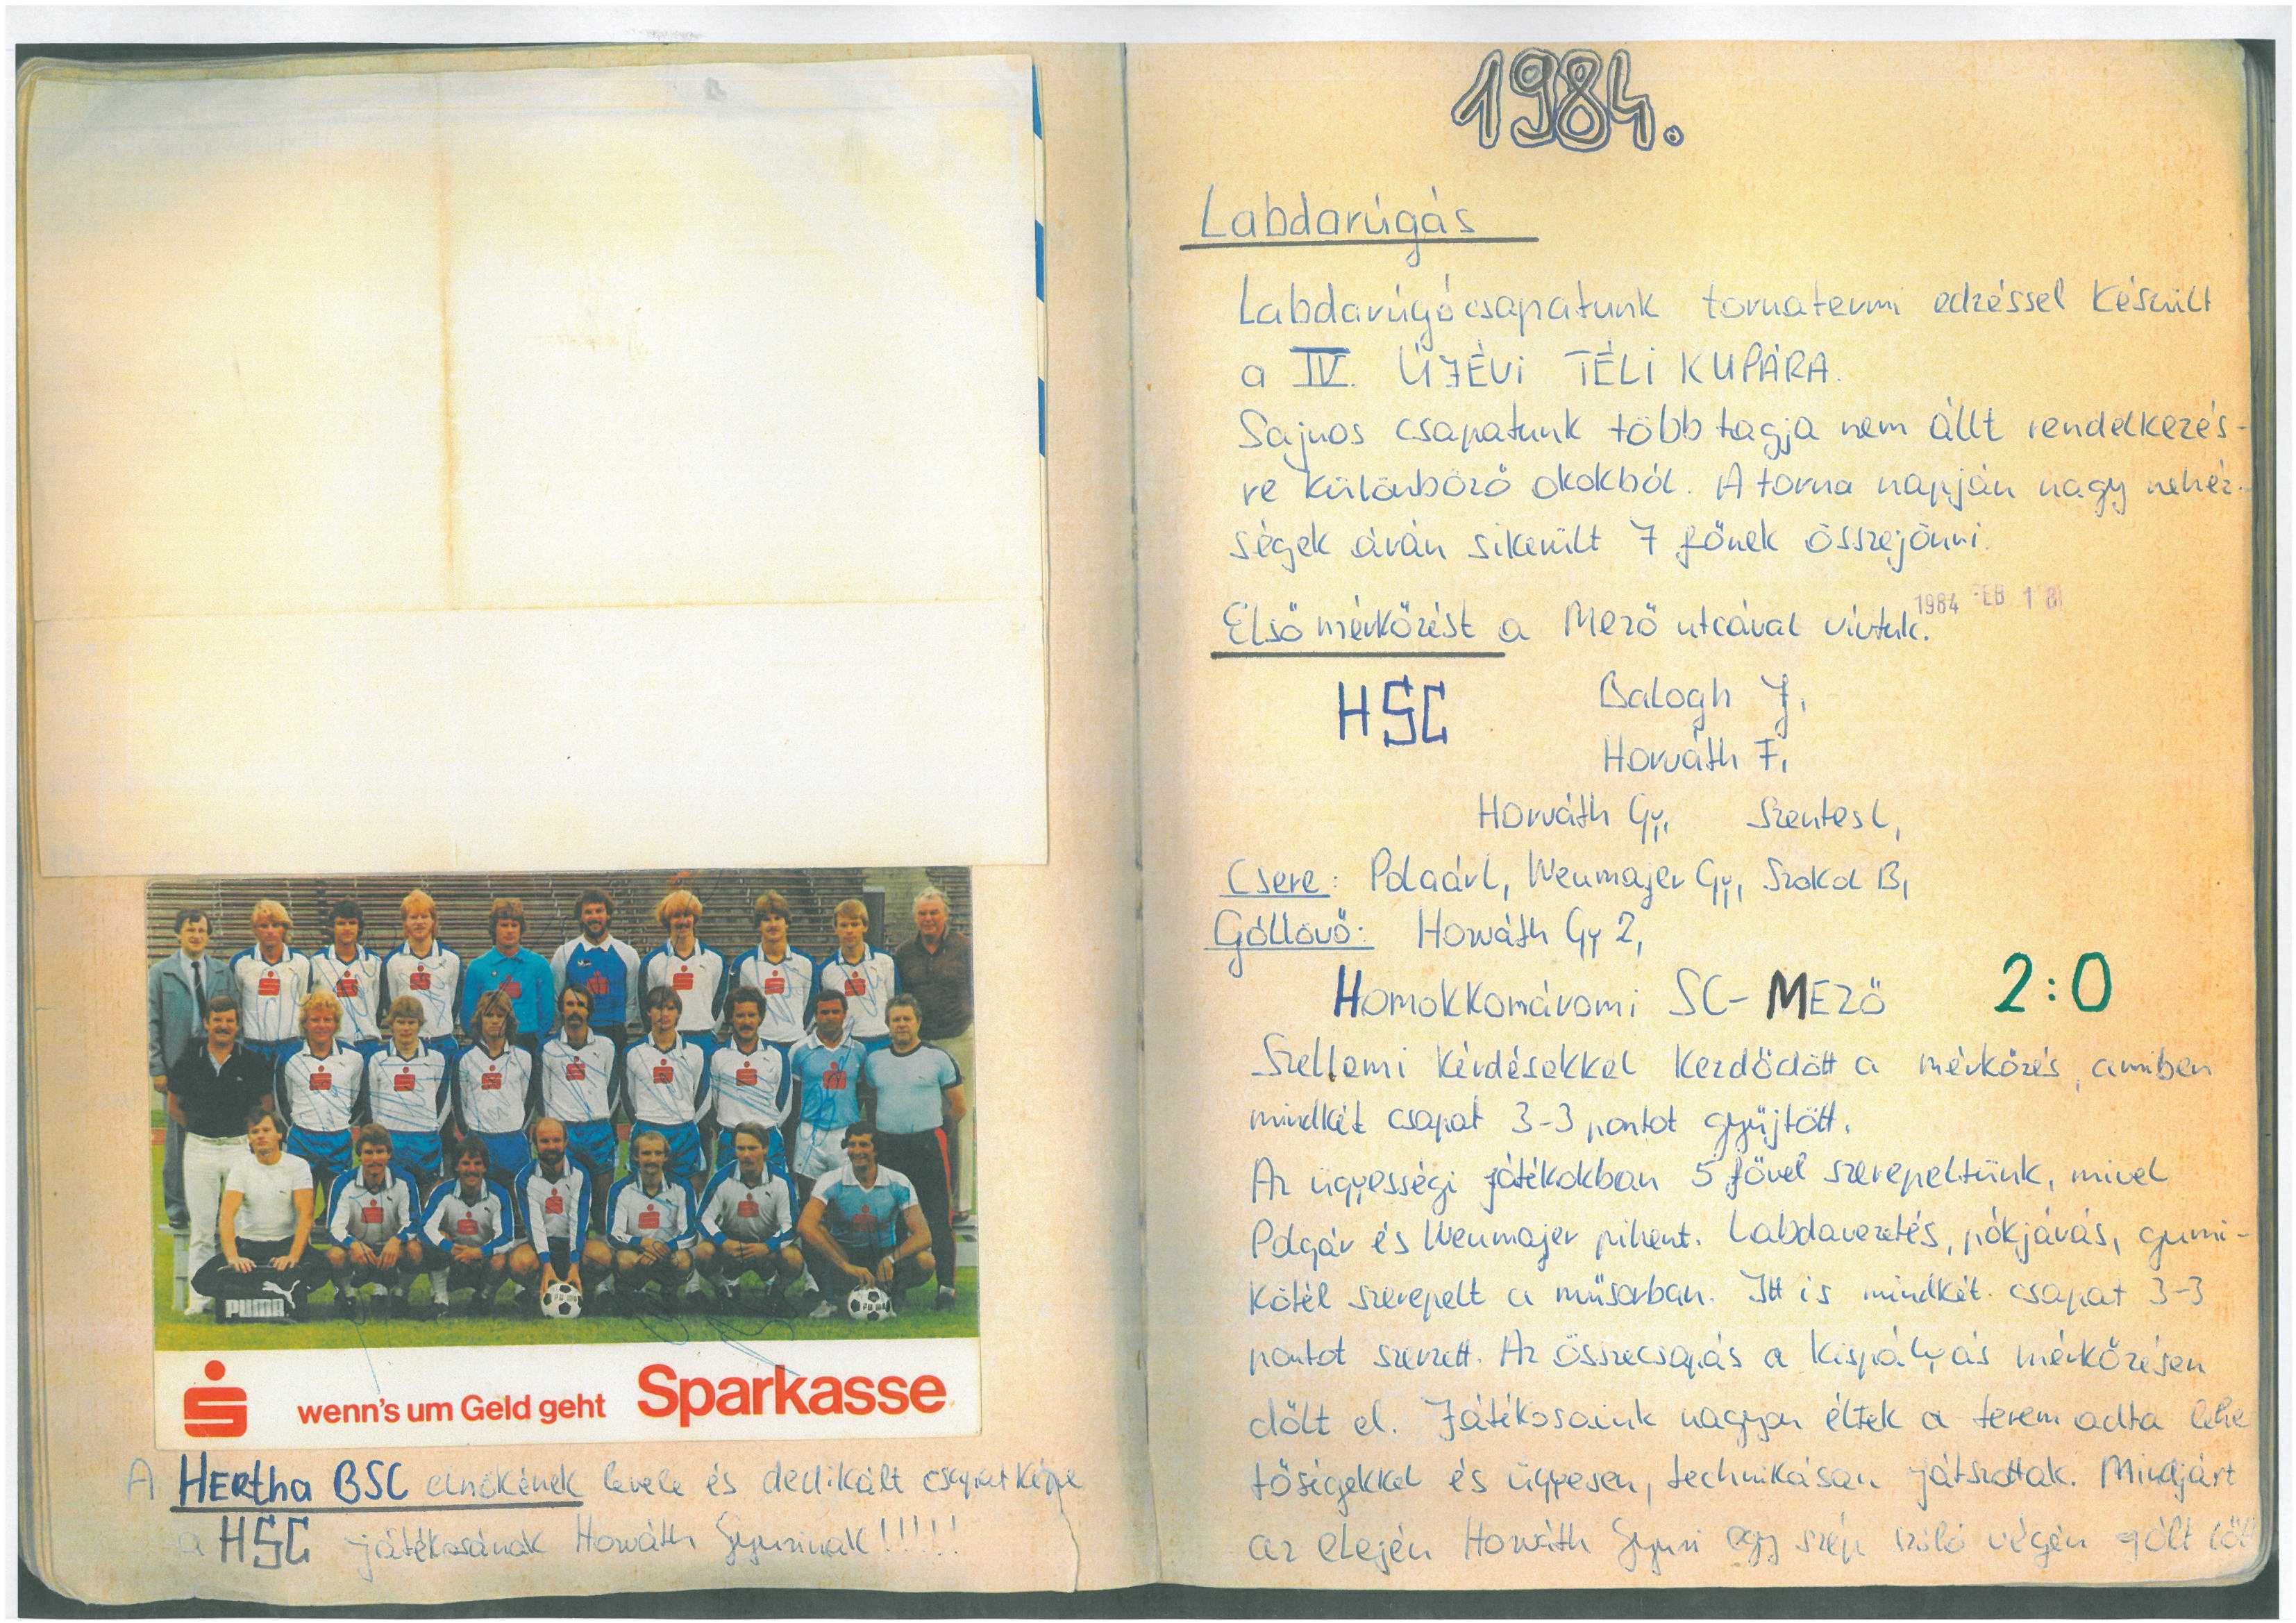 PUMA
wenn's um Geld geht Sparkasse
A HERtha BSC elnökének levele és dedikált csapatképe
a HSC játékosának Horváth Gyurinak!!!!!
1984.
Labdarúgás
Labdarúgócsapatunk tornatermi edzéssel készült
a IV. ÚJÉVi TÉLi KUPÁRA.
Sajnos csapatunk több tagja nem állt rendelkezés-
re különböző okokból. A torna napján nagy nehéz-
ségek árán sikerült 7 főnek összejönni.
1984 FEB
Első mérkőzést a Mező utcával vívtuk.
HSC Balogh J,
Horváth F,
Horváth Gy, Szentes L,
Csere: Polgár L, Weumajer Gy, Szokol B,
Góllövő: Horváth Gy 2,
Homokkomáromi SC- MEZŐ 2:0
Szellemi kérdésekkel kezdődött a mérkőzés, amiben
mindkét csapat 3-3 pontot gyűjtött.
Az ügyességi játékokban 5 fővel szerepeltünk, mivel
Polgár és Weumajer pihent. Labdavezetés, pókjárás, gumi-
kötél szerepelt a műsorban. Itt is mindkét csapat 3-3
pontot szerzett. Az összecsapás a kispályás mérkőzésen
dőlt el. Játékosaink nagyon éltek a terem adta lehe
tőségekkel és ügyesen, technikásan játszottak. Mindjárt
az elején Horváth Gyuri egy szép szóló végén gólt lőtt